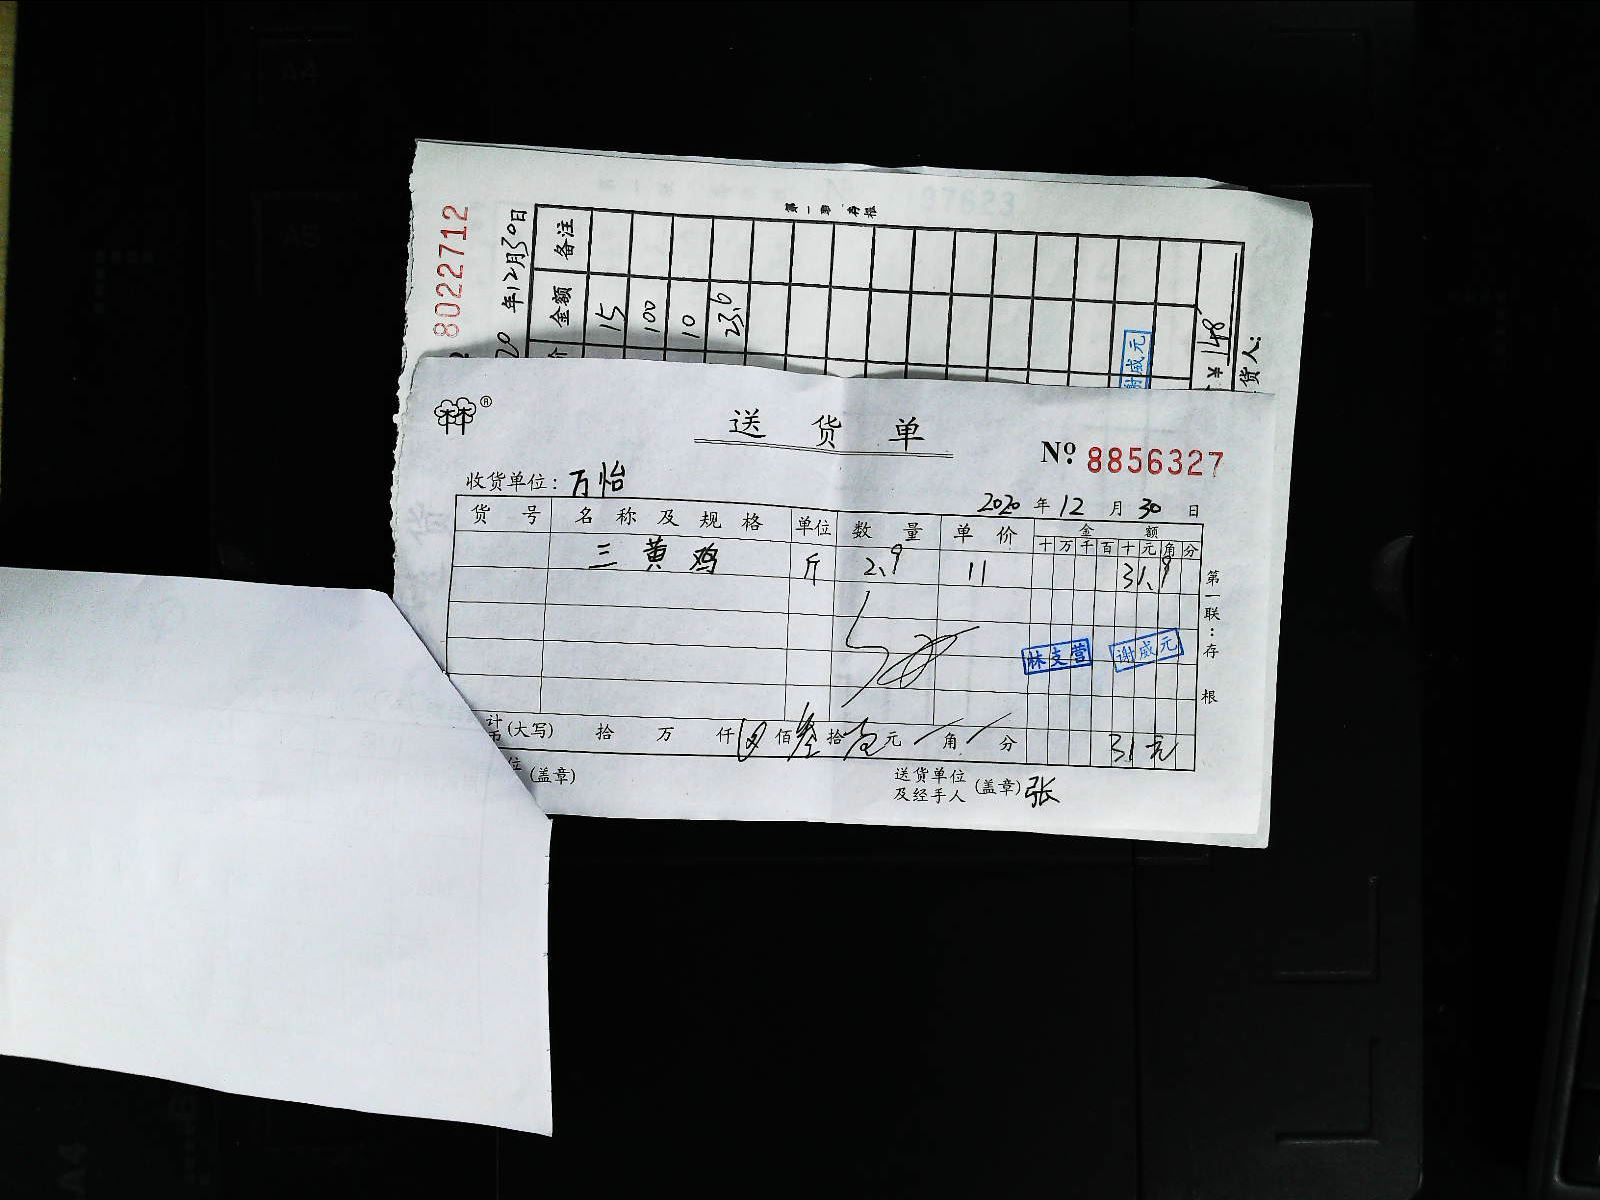 第一联 存根
8022712
20年12月30日
备注
金额 15 100 10 23.6
¥148
货人:
谢威元
®
送货单
Nº 8856327
收货单位: 万怡
2020年12月30日
货号 名称及规格 单位 数量 单价 金额
十万千百十元角分
三黄鸡 斤 2.9 11 31.9
林支营 谢威元
第一联:存根
计(大写) 拾 万 仟 佰叁拾壹元 角 分 31元
位(盖章)
送货单位及经手人(盖章) 张